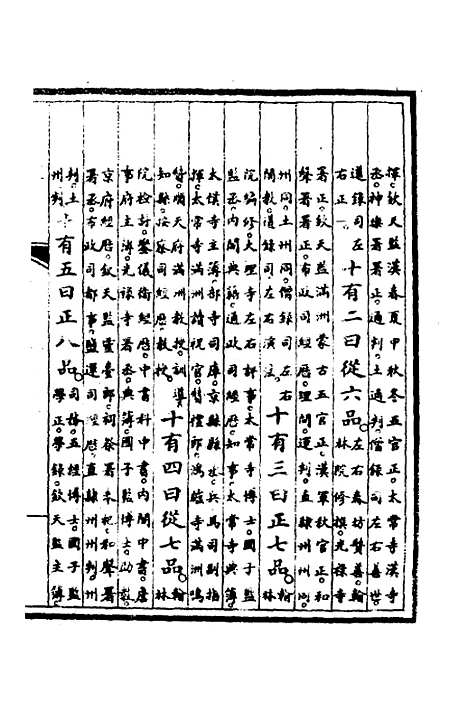 揮欽天監漢春夏中秋冬五官正太常寺漢寺
丞神樂署署正通判土通判僧錄司左右善世
道錄司左右正一十有二曰從六品左右春坊贊善翰林院修撰光祿寺
署正欽天監滿洲蒙古五官正漢軍秋官正和
聲署署正布政司經歷理問運判直隸州州同
州同土州同僧錄司左右闡教道錄司左右演法十有三曰正七品翰林
院編修大理寺左右評事太常寺博士國子監
監丞內閣典籍通政司經歷知事太常寺典簿
太僕寺主簿部寺司庫京縣縣丞兵馬司副指
揮太常寺滿洲讀祝官贊禮郎鴻臚寺滿洲鳴
贊順天府滿洲教授訓導知縣按察司經歷教授十有四曰從七品翰林
院檢討鑾儀衛經歷中書科中書內閣中書詹
事府主簿光祿寺署丞典簿國子監博士助教
京府經歷欽天監靈臺郎祠祭署奉祀和聲署
署丞布政司都事鹽運司經歷直隸州州判州
州判土州判十有五曰正八品司務五經博士國子監學正學錄欽天監主簿